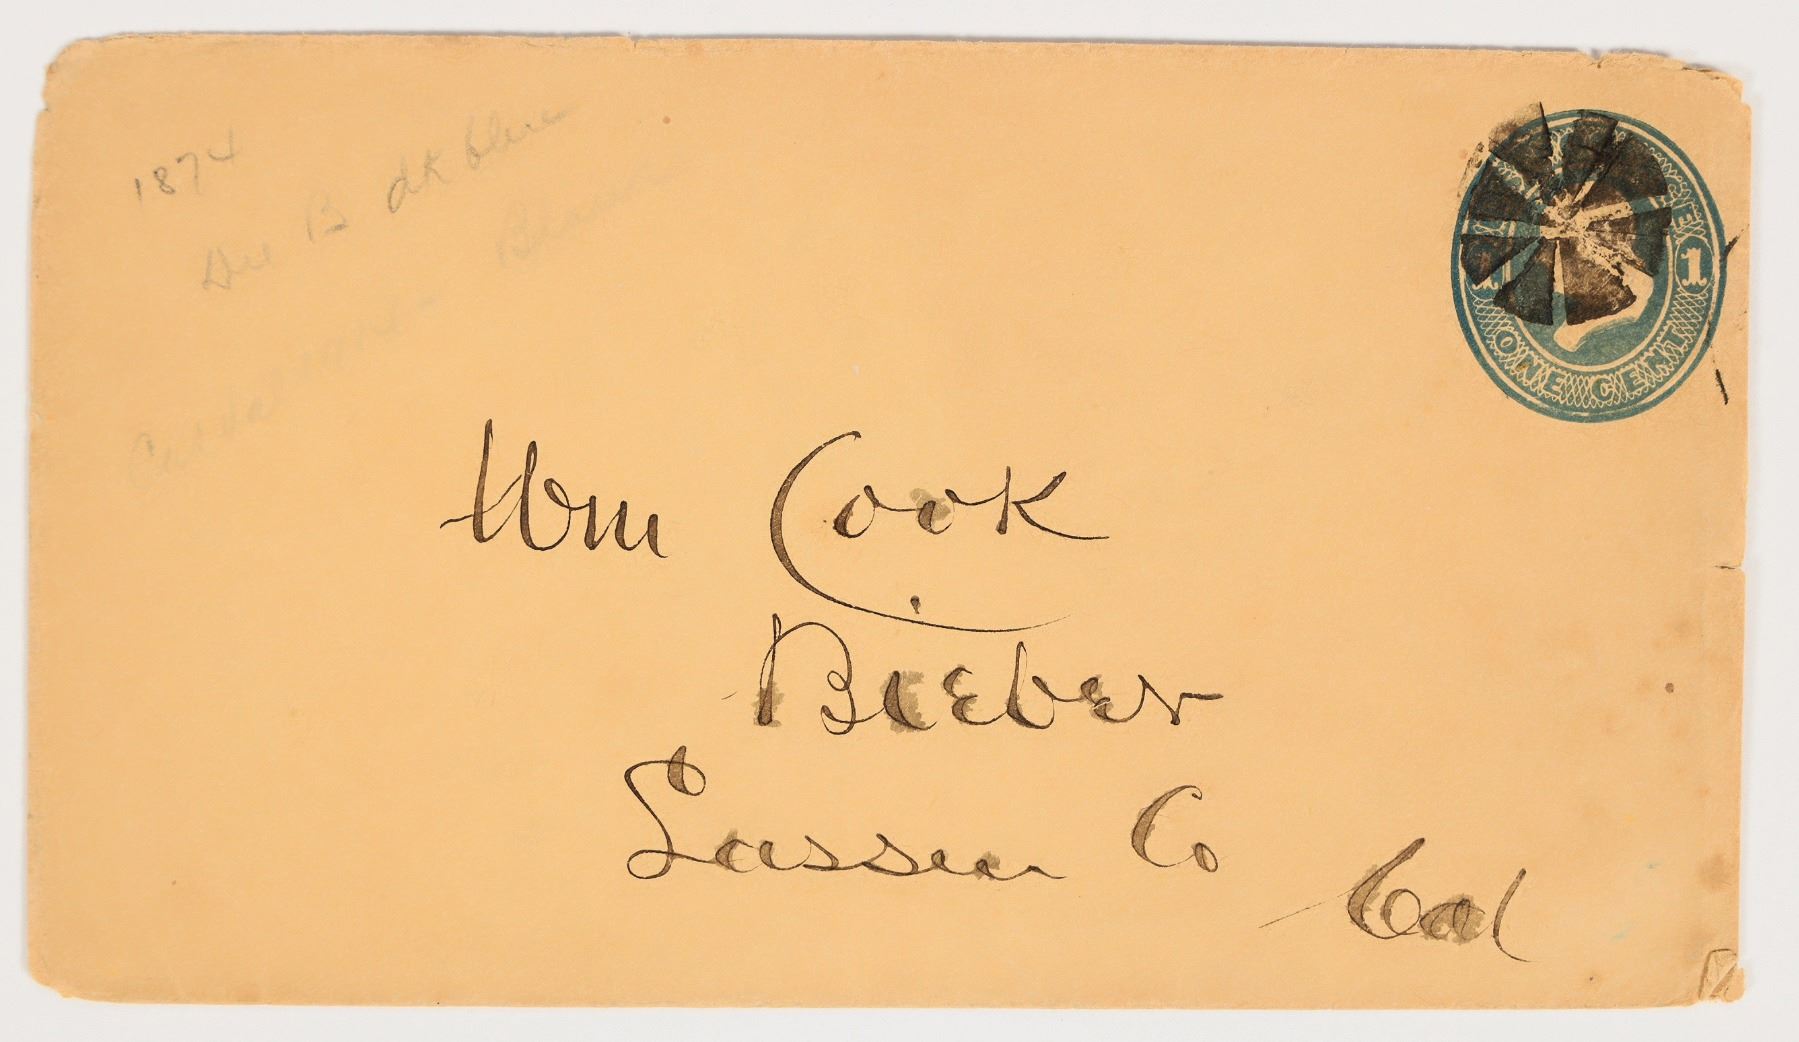 1874
Die B dk blue
1
ONE CENT
Wm Cook
Bieber
Lassen Co
Cal